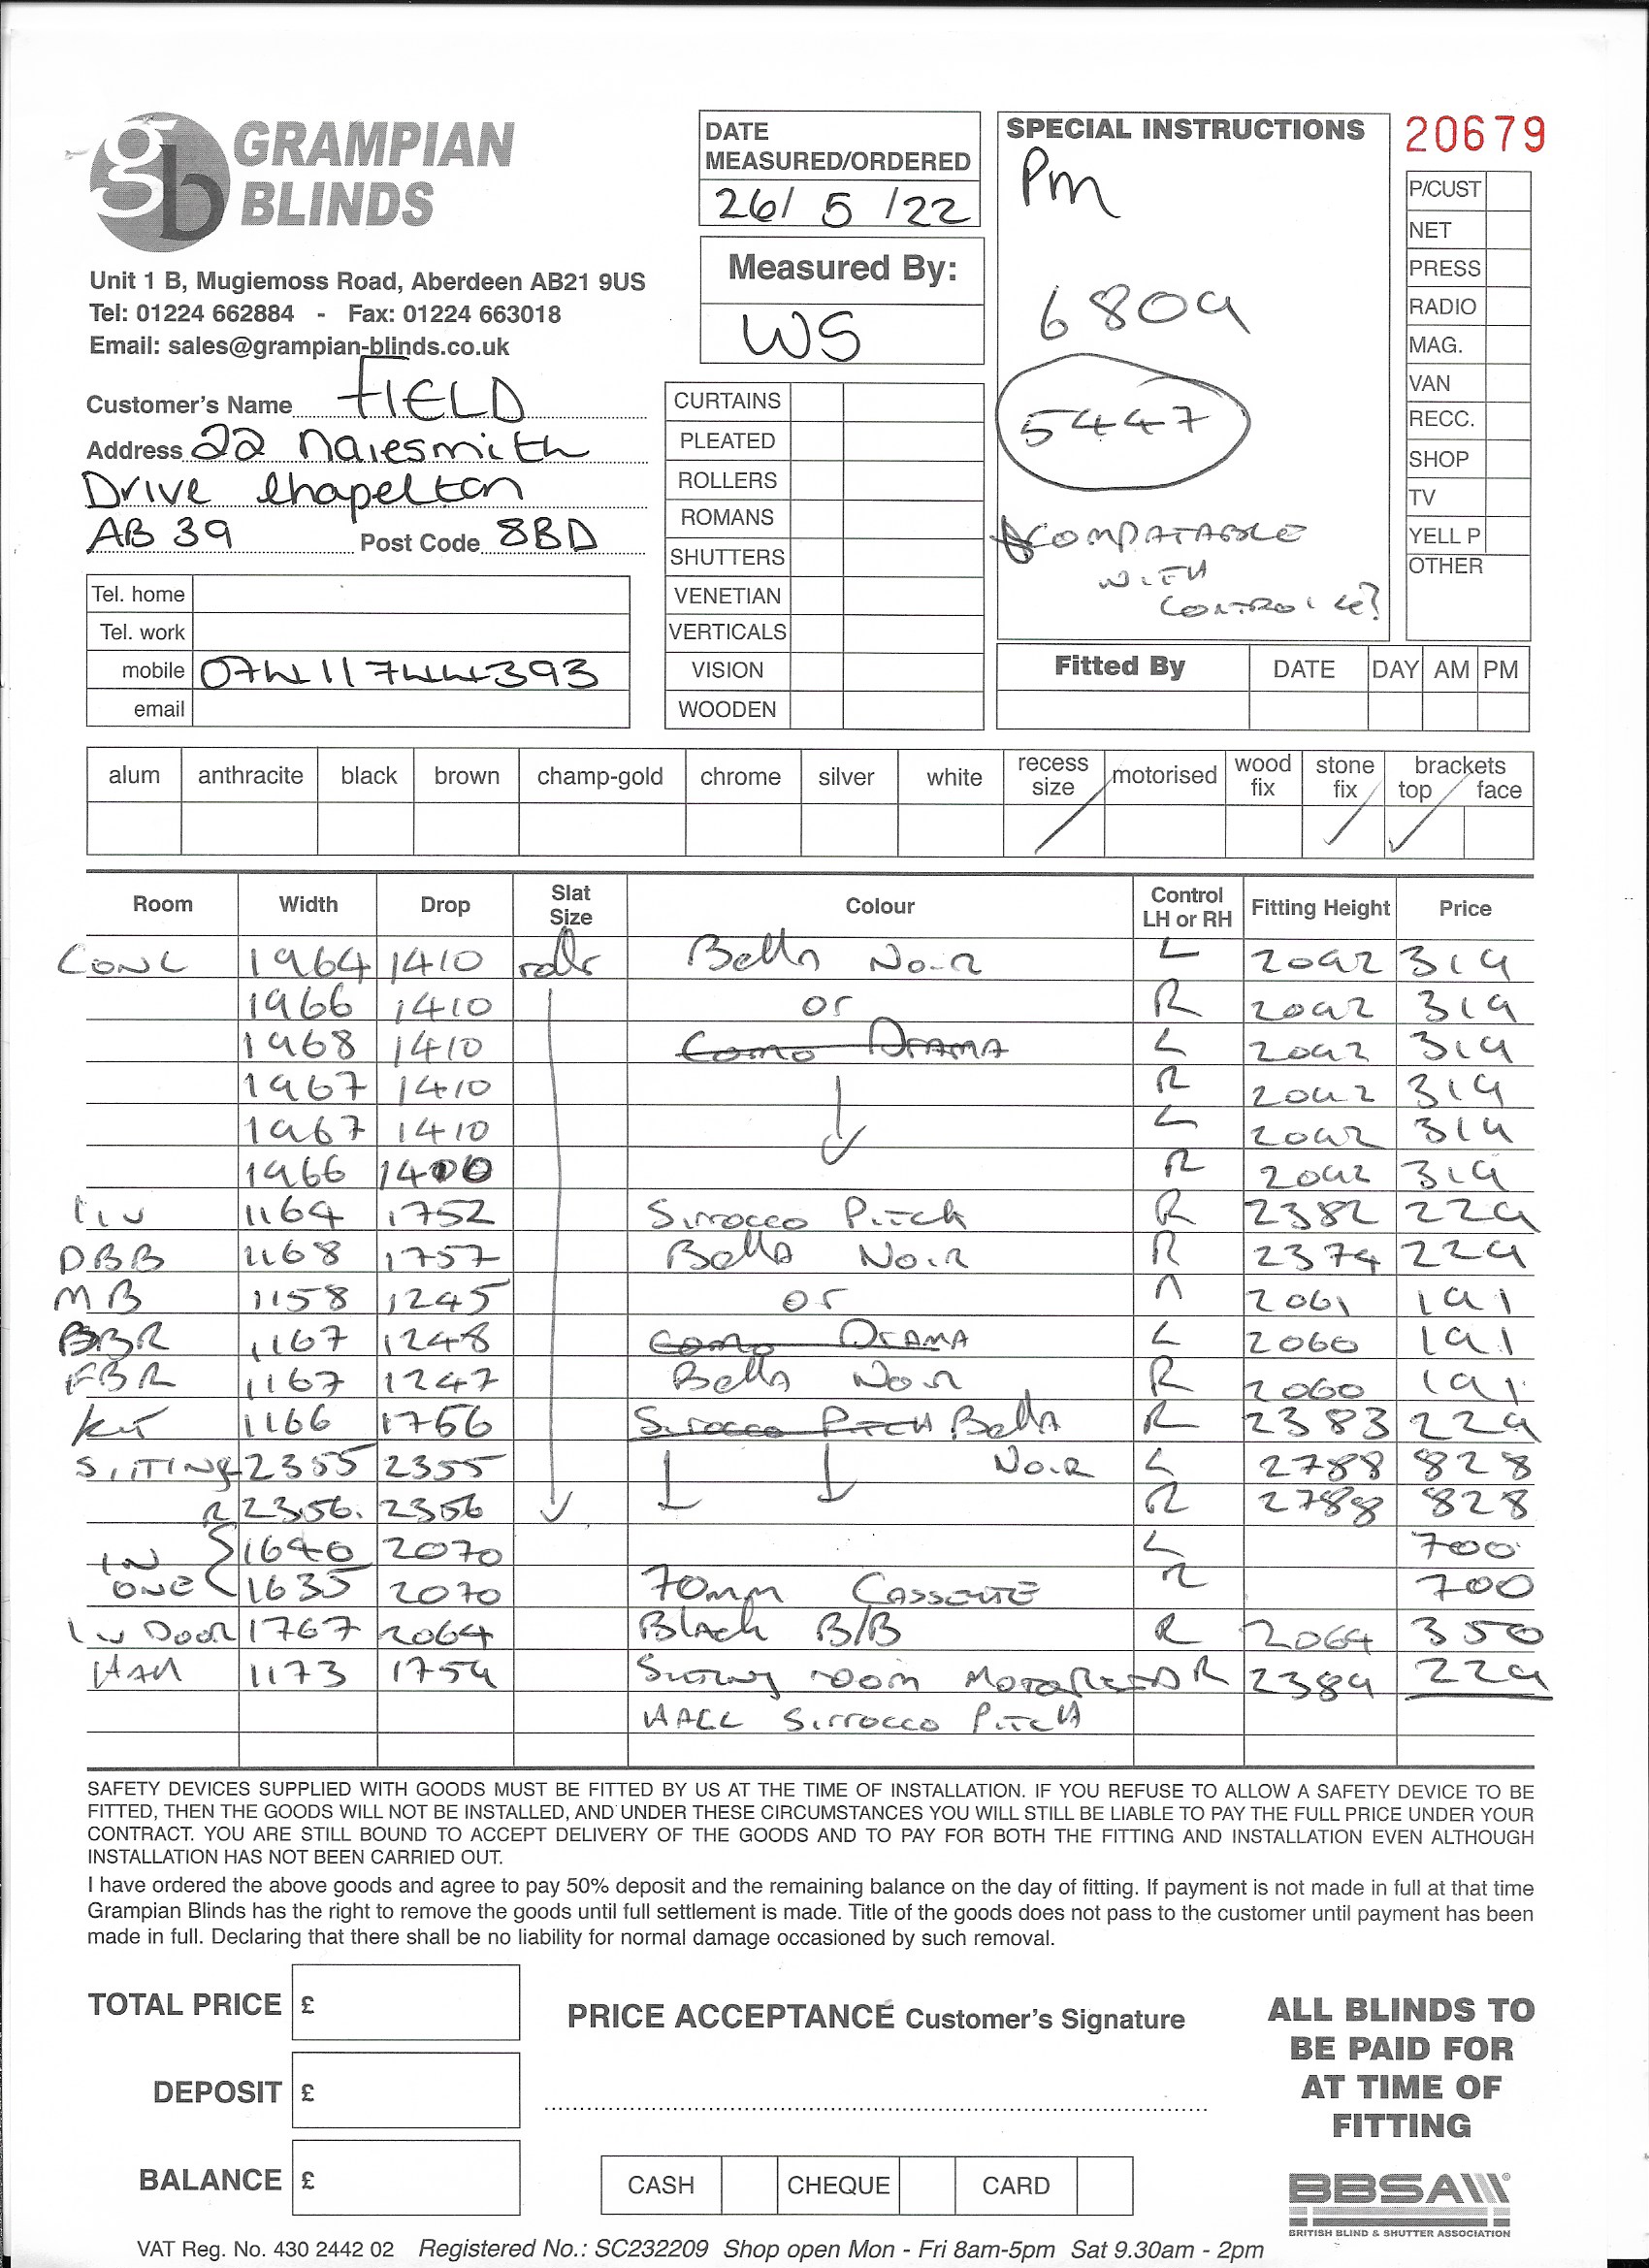 GRAMPIAN
BLINDS
Unit 1 B, Mugiemoss Road, Aberdeen AB21 9US
Tel: 01224 662884 - Fax: 01224 663018
Email: sales@grampian-blinds.co.uk
DATE
MEASURED/ORDERED
26/ 5 /22
Measured By:
WS
SPECIAL INSTRUCTIONS
Pm
6809
5447
COMPATABLE
WITH
20679
P/CUST
NET
PRESS
RADIO
MAG.
VAN
RECC.
SHOP
TV
YELL P
OTHER
Customer's Name FIELD
Address 22 Naiesmith
Drive Chapelton
AB 39 Post Code 8BD
Tel. home
Tel. work
mobile
email
CURTAINS
PLEATED
ROLLERS
ROMANS
SHUTTERS
VENETIAN
VERTICALS
VISION
WOODEN
Fitted By DATE DAY AM PM
alum anthracite black brown champ-gold chrome silver white recess size motorised wood fix stone fix brackets top face
Room Width Drop Slat Size Colour Control LH or RH Fitting Height Price
1964 1410 Bella Noir L 2092 319
1966 1410 or R 2092 319
1968 1410 Como Drama L 2092 319
1967 1410 R 2092 319
1967 1410 L 2092 319
1966 1400 R 2092 319
Liv 1164 1752 Sirrocco Pitch R 2382 229
DBB 1168 1757 Bella Noir R 2374 229
MB 1158 1245 or 2061 191
BBR 1167 1248 Como Drama L 2060 191
FBR 1167 1247 Bella Noir R 2060 191
Kit 1166 1756 Sirocco Pitch Bella R 2383 229
SITTING 2355 2355 Noir L 2788 828
R 2356. 2356 R 2788 828
IN 1640 2070 L 700
ONE 1635 2070 70mm CASSETTE R 700
Liv Door 1767 2064 Black B/B R 2064 350
Hall 1173 1759 Sitting room Motorised R 2389 229
HALL Sirrocco Pitch
SAFETY DEVICES SUPPLIED WITH GOODS MUST BE FITTED BY US AT THE TIME OF INSTALLATION. IF YOU REFUSE TO ALLOW A SAFETY DEVICE TO BE
FITTED, THEN THE GOODS WILL NOT BE INSTALLED, AND UNDER THESE CIRCUMSTANCES YOU WILL STILL BE LIABLE TO PAY THE FULL PRICE UNDER YOUR
CONTRACT. YOU ARE STILL BOUND TO ACCEPT DELIVERY OF THE GOODS AND TO PAY FOR BOTH THE FITTING AND INSTALLATION EVEN ALTHOUGH
INSTALLATION HAS NOT BEEN CARRIED OUT.
I have ordered the above goods and agree to pay 50% deposit and the remaining balance on the day of fitting. If payment is not made in full at that time
Grampian Blinds has the right to remove the goods until full settlement is made. Title of the goods does not pass to the customer until payment has been
made in full. Declaring that there shall be no liability for normal damage occasioned by such removal.
TOTAL PRICE £
DEPOSIT £
BALANCE £
PRICE ACCEPTANCE Customer's Signature
CASH CHEQUE CARD
ALL BLINDS TO
BE PAID FOR
AT TIME OF
FITTING
BBSA
BRITISH BLIND & SHUTTER ASSOCIATION
VAT Reg. No. 430 2442 02 Registered No.: SC232209 Shop open Mon - Fri 8am-5pm Sat 9.30am - 2pm